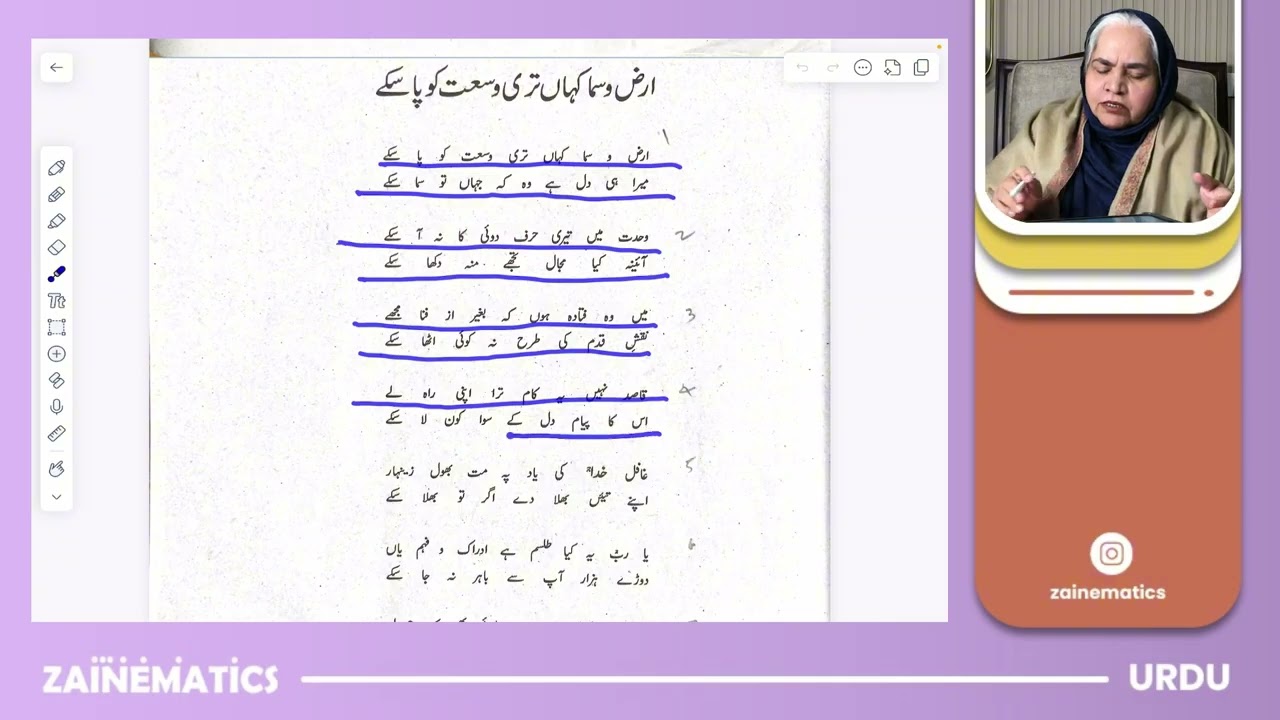 ارض و سما کہاں تری وسعت کو پا سکے
1
ارض و سما کہاں تری وسعت کو پا سکے
میرا ہی دل ہے وہ کہ جہاں تو سما سکے
2
وحدت میں تیری حرف دوئی کا نہ آ سکے
آئینہ کیا مجال تجھے منہ دکھا سکے
3
میں وہ فتادہ ہوں کہ بغیر از فنا مجھے
نقشِ قدم کی طرح نہ کوئی اٹھا سکے
4
قاصد نہیں یہ کام ترا اپنی راہ لے
اس کا پیام دل کے سوا کون لا سکے
5
غافل خدا کی یاد پہ مت بھول زینہار
اپنے تئیں بھلا دے اگر تو بھلا سکے
6
یا رب یہ کیا طلسم ہے ادراک و فہم یاں
دوڑے ہزار آپ سے باہر نہ جا سکے
Tt
zainematics
ZAINEMATICS
URDU